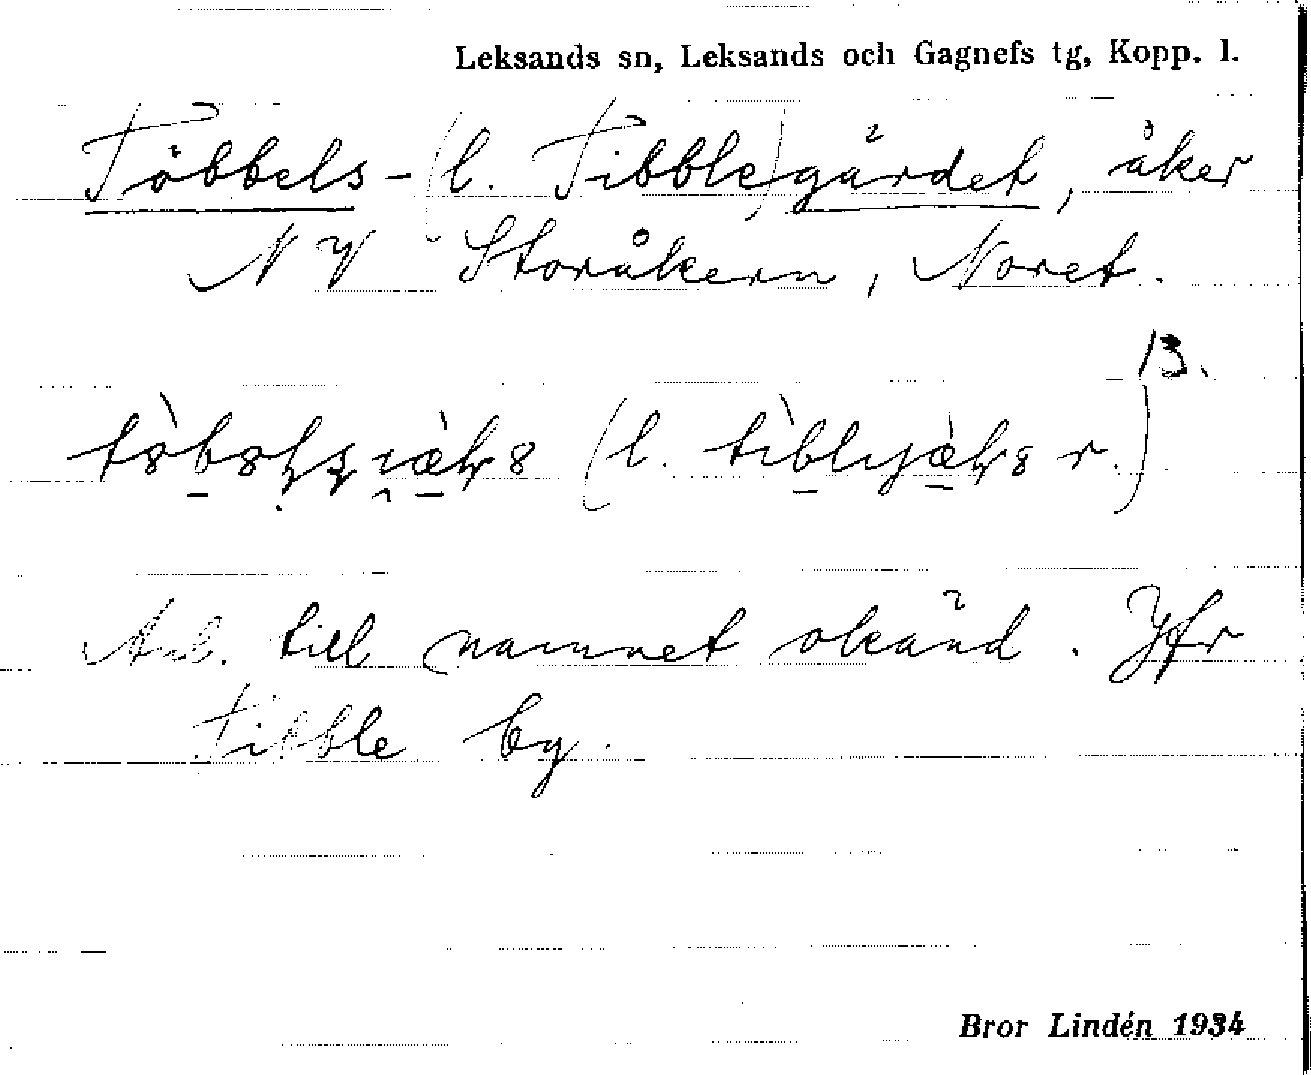 Leksands sn, Leksands och Gagnefs tg, Kopp. l.
Többels- (l. Tibble)gärdet, åker
NV Storåkern, Noret.
B.
(l. r.)
Anl. till namnet okänd. Jfr
Tibble by.
Bror Lindén 1934